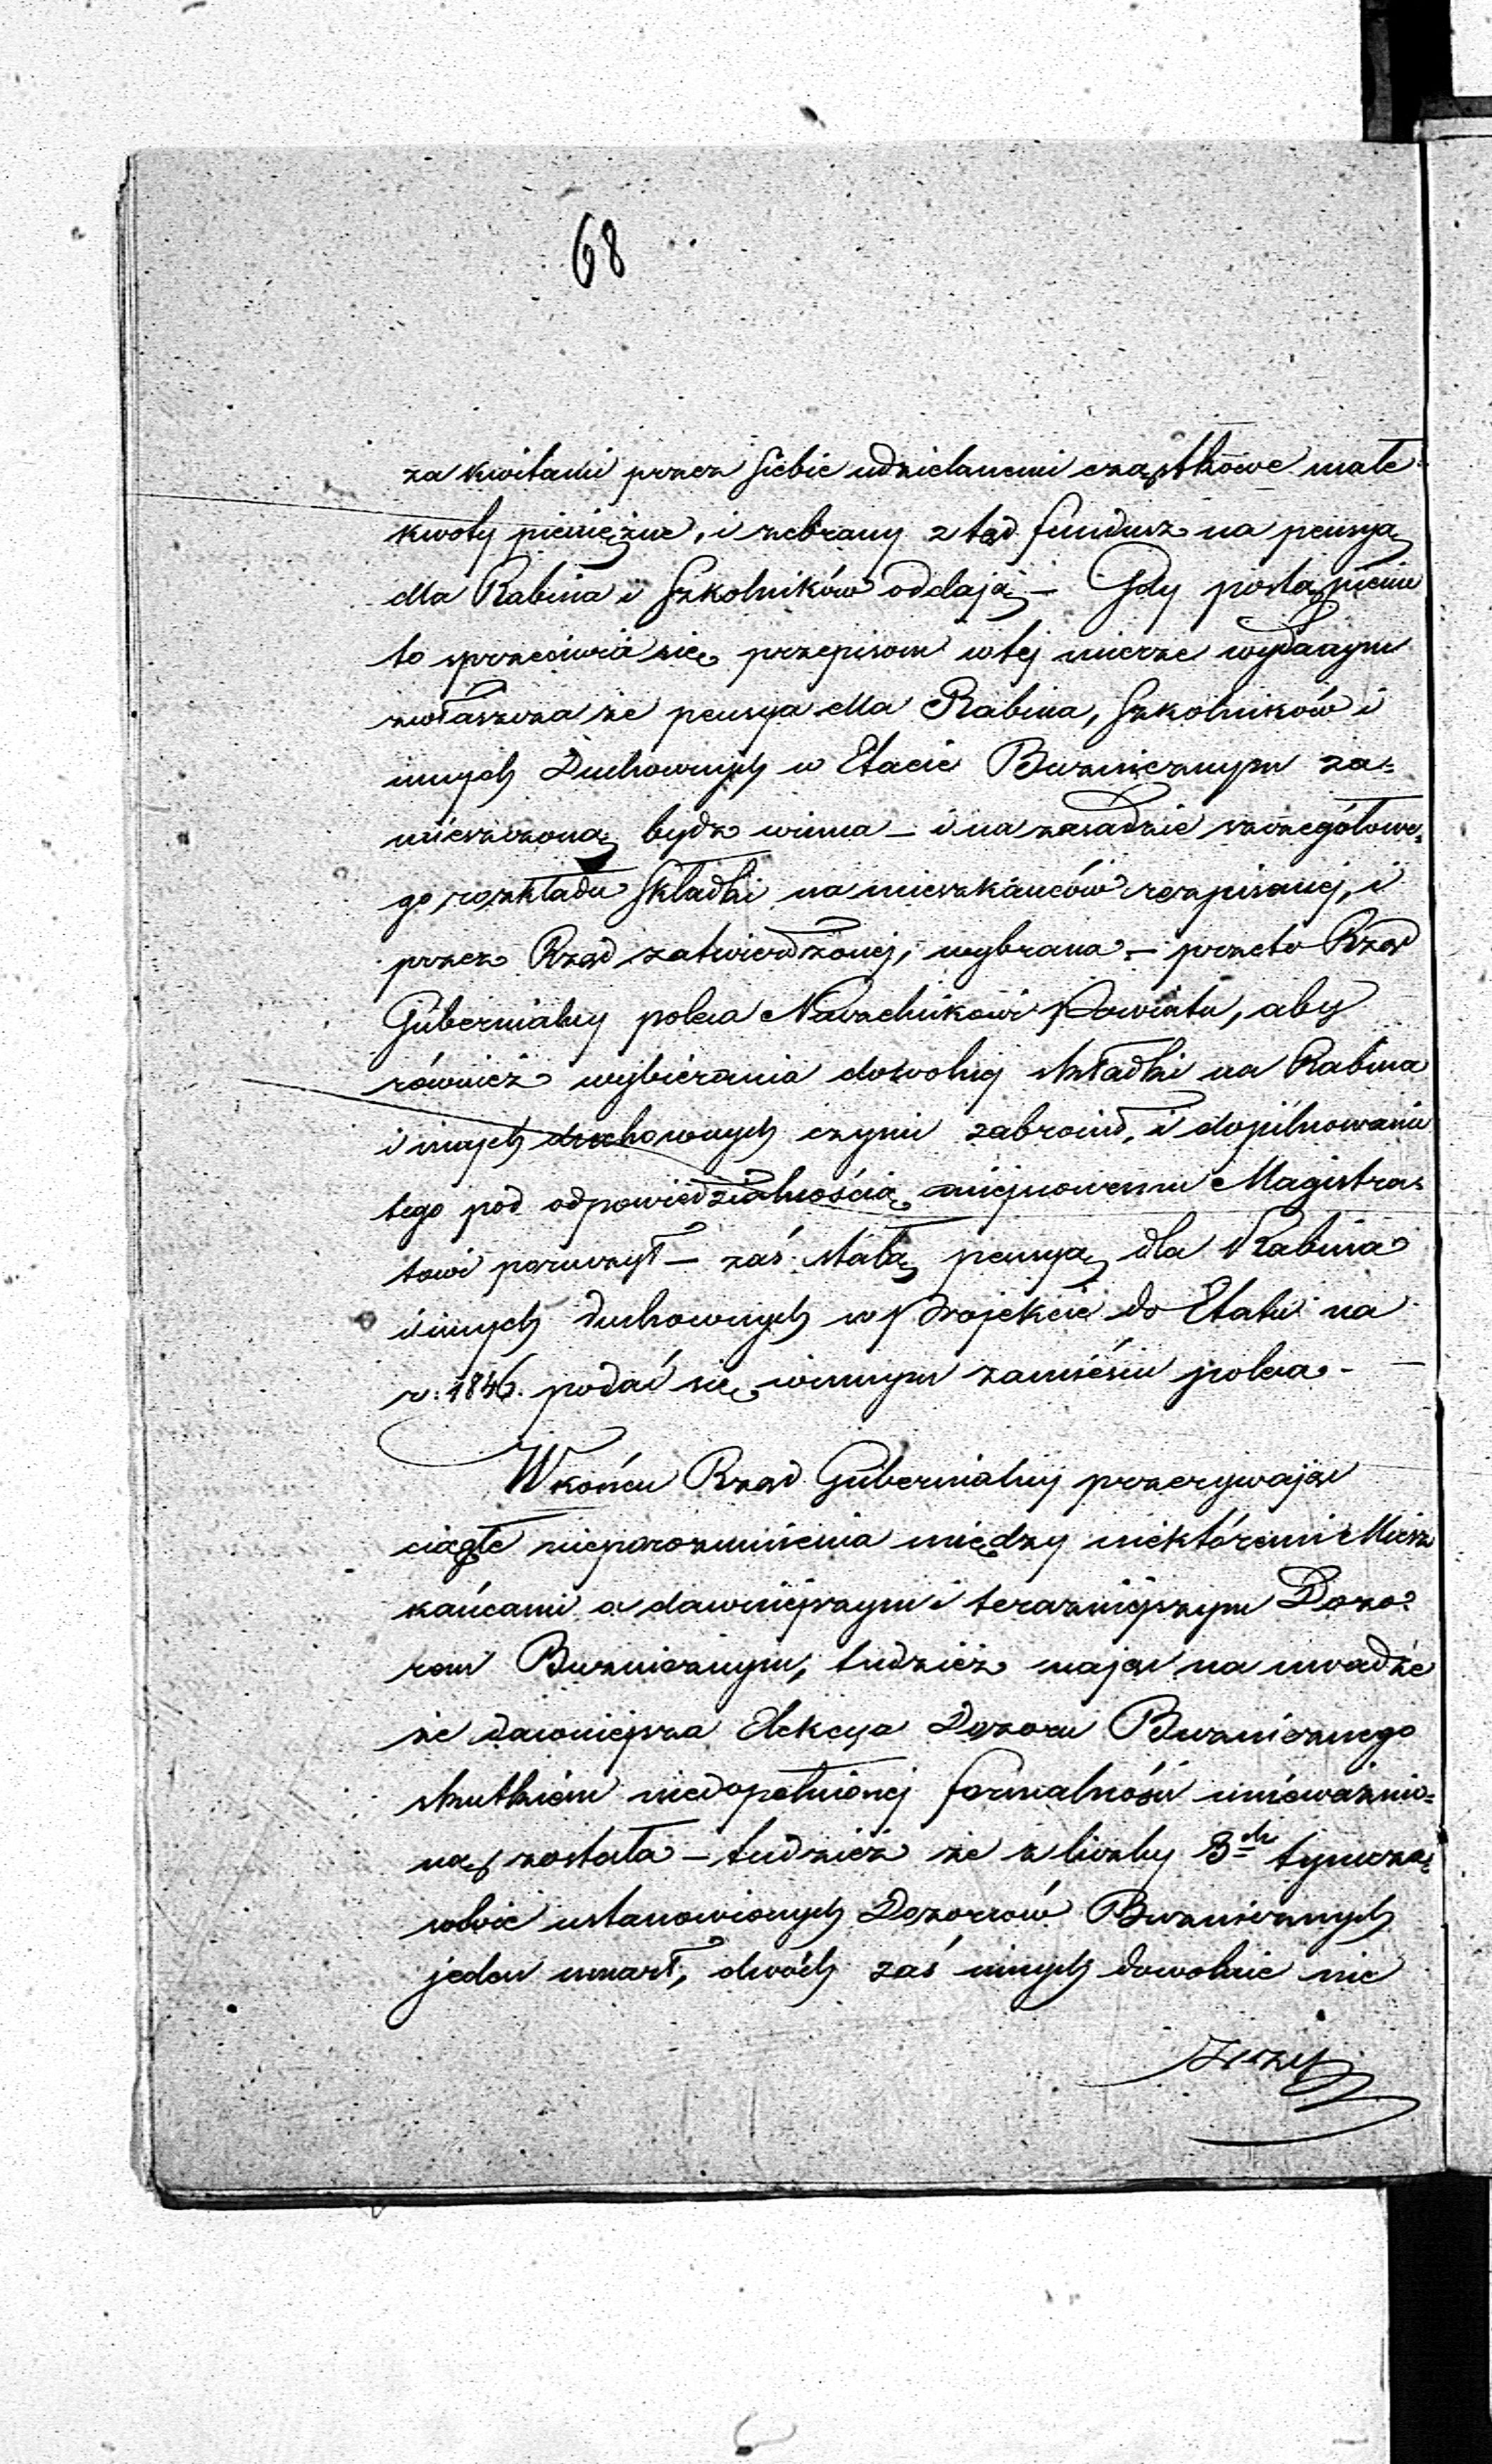 68
za kwitami przez siebie udzielanemi cząstkowe małe
kwoty pieniężne, i zebrany z tąd fundusz na pensyą
dla Rabina i Szkolników oddają – Gdy postąpienie
to sprzeciwia się przepisom w tej mierze wydanym
zwłaszcza że pensya dla Rabina, Szkolników i
innych Duchownych w Etacie Bużnicznym za=
mieszczoną bydź winna – i na zasadzie szczegółowe=
go rozkładu Składki na mieszkańców rozpisanej, i
przez Rząd zatwierdzonej, wybrana – przeto Rząd
Gubernialny poleca Naczelnikowi Powiatu, aby
również wybierania dowolnej składki na Rabina
i innych duchownych czynić zabronił, i dopilnowanie
tego pod odpowiedzialnością miejscowemu Magistra=
towi poruczył – zaś stałą pensyą dla Rabina
i innych duchownych w Projekcie do Etatu na
r: 1846. podać się winnym zamieścić poleca –
W końcu Rząd Gubernialny przerywając
ciągłe nieporozumienia między niektóremi Miesz
kańcami a dawniejszym i teraźniejszym Dozo=
rem Bużnicznym, tudzież mając na uwadze
że dawniejsza Elekcya Dozoru Bużnicznego
skutkiem niedopełnionej formalności unieważnio=
ną została – tudzież że z liczby 3ch tymcza=
sowie ustanowionych Dozorców Bużnicznych
jeden umarł, dwóch zaś innych dowolnie nie